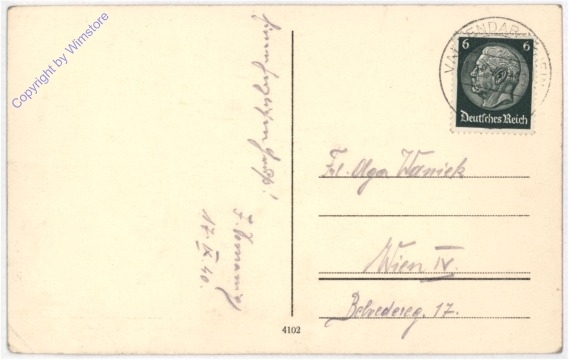 Copyright by Wimstore
17. IX. 40.
VALLENDAR
6 6
Deutsches Reich
Frl. Olga Waniek
Wien IV.
Belvedereg. 17.
4102